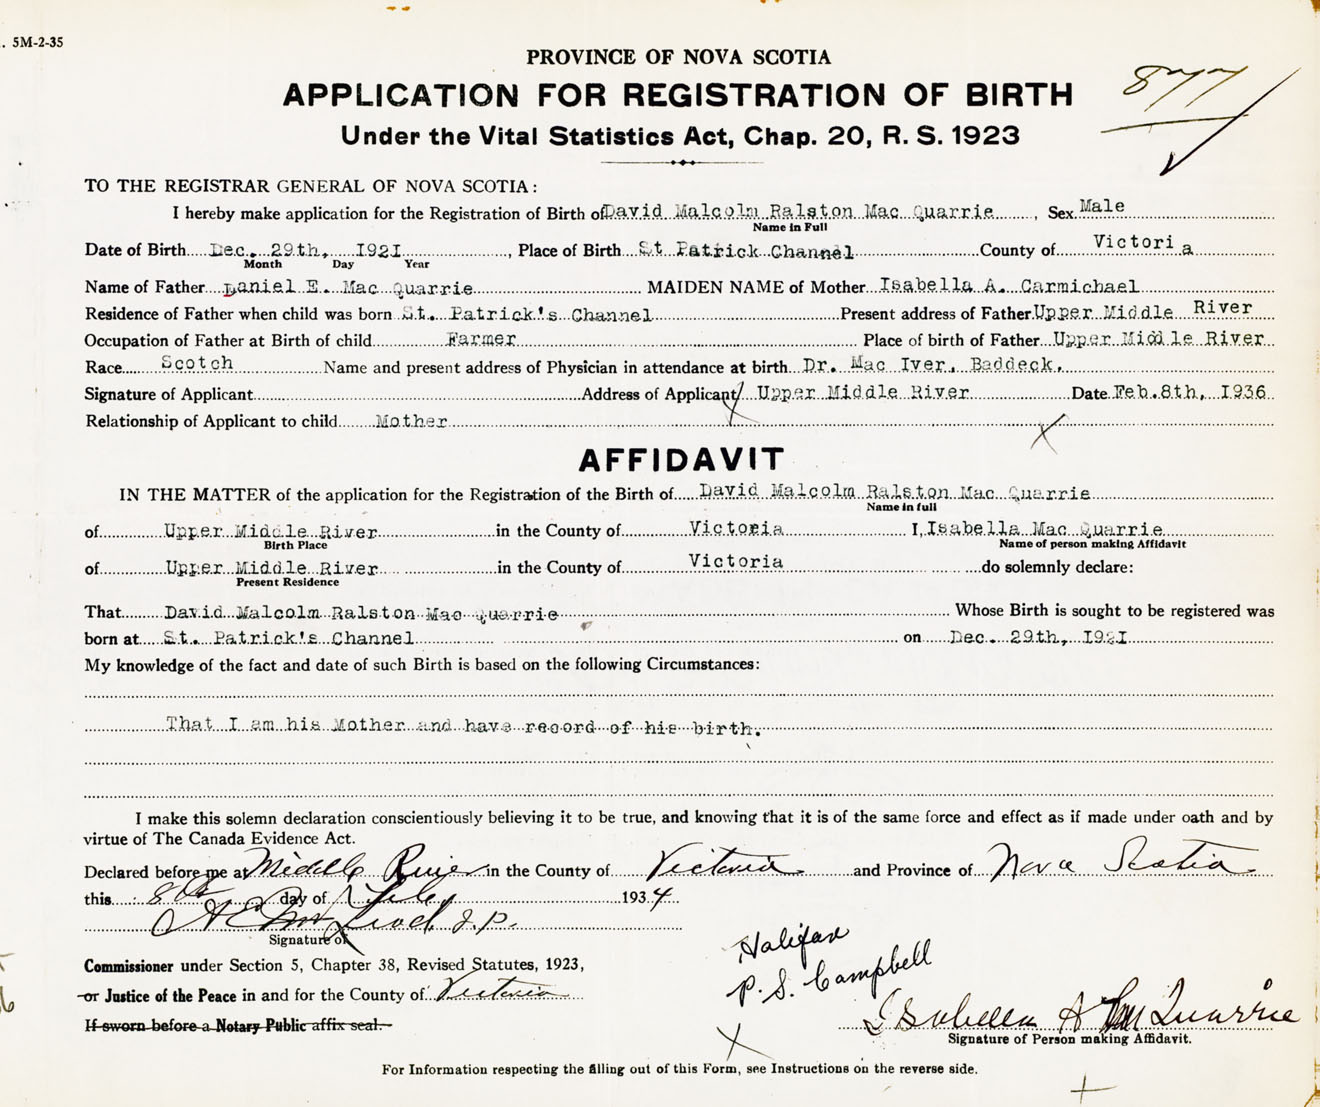 . 5M-2-35
PROVINCE OF NOVA SCOTIA
APPLICATION FOR REGISTRATION OF BIRTH
Under the Vital Statistics Act, Chap. 20, R. S. 1923
TO THE REGISTRAR GENERAL OF NOVA SCOTIA:
I hereby make application for the Registration of Birth of David Malcolm Ralston Mac Quarrie, Sex Male
Name in Full
Date of Birth Dec. 29th, 1921, Place of Birth St Patrick Channel County of Victoria
Month Day Year
Name of Father Daniel E. Mac Quarrie MAIDEN NAME of Mother Isabella A. Carmichael
Residence of Father when child was born St. Patrick's Channel Present address of Father Upper Middle River
Occupation of Father at Birth of child Farmer Place of birth of Father Upper Middle River
Race Scotch Name and present address of Physician in attendance at birth Dr. Mac Iver, Baddeck,
Signature of Applicant Address of Applicant Upper Middle River Date Feb.8th, 1936
Relationship of Applicant to child Mother
AFFIDAVIT
IN THE MATTER of the application for the Registration of the Birth of David Malcolm Ralston Mac Quarrie
Name in full
of Upper Middle River in the County of Victoria I, Isabella Mac Quarrie
Birth Place Name of person making Affidavit
of Upper Middle River in the County of Victoria do solemnly declare:
Present Residence
That David Malcolm Ralston Mac Quarrie Whose Birth is sought to be registered was
born at St. Patrick's Channel on Dec. 29th, 1921
My knowledge of the fact and date of such Birth is based on the following Circumstances:
That I am his Mother and have record of his birth.
I make this solemn declaration conscientiously believing it to be true, and knowing that it is of the same force and effect as if made under oath and by
virtue of The Canada Evidence Act.
Declared before me at Middle River in the County of Victoria and Province of Nova Scotia
this 8th day of Feb 1934
J.P.
Signature of
Commissioner under Section 5, Chapter 38, Revised Statutes, 1923,
or Justice of the Peace in and for the County of Victoria
If sworn before a Notary Public affix seal.
Halifax
P. S. Campbell
Isabella A Mac Quarrie
Signature of Person making Affidavit.
For Information respecting the filling out of this Form, see Instructions on the reverse side.